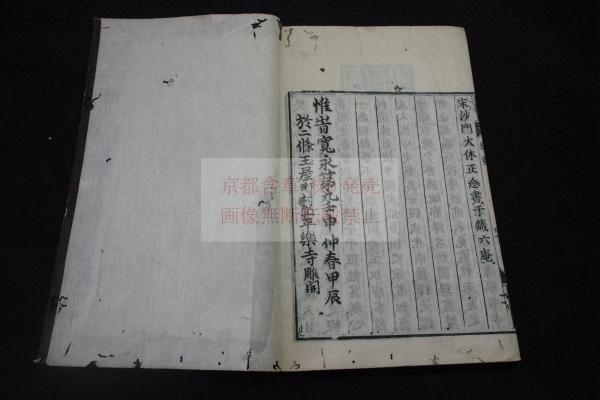 宋沙門大休正念書于藏六庵
惟旹寛永第九壬申仲春甲辰
於二條玉屋町村上平樂寺雕開
京都含章 発売
画像無断転載禁止